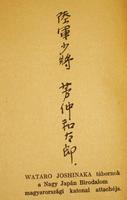 陸軍少將
芳仲和太郎
WATARO JOSHINAKA tábornok
a Nagy Japán Birodalom
magyarországi katonai attachéja.